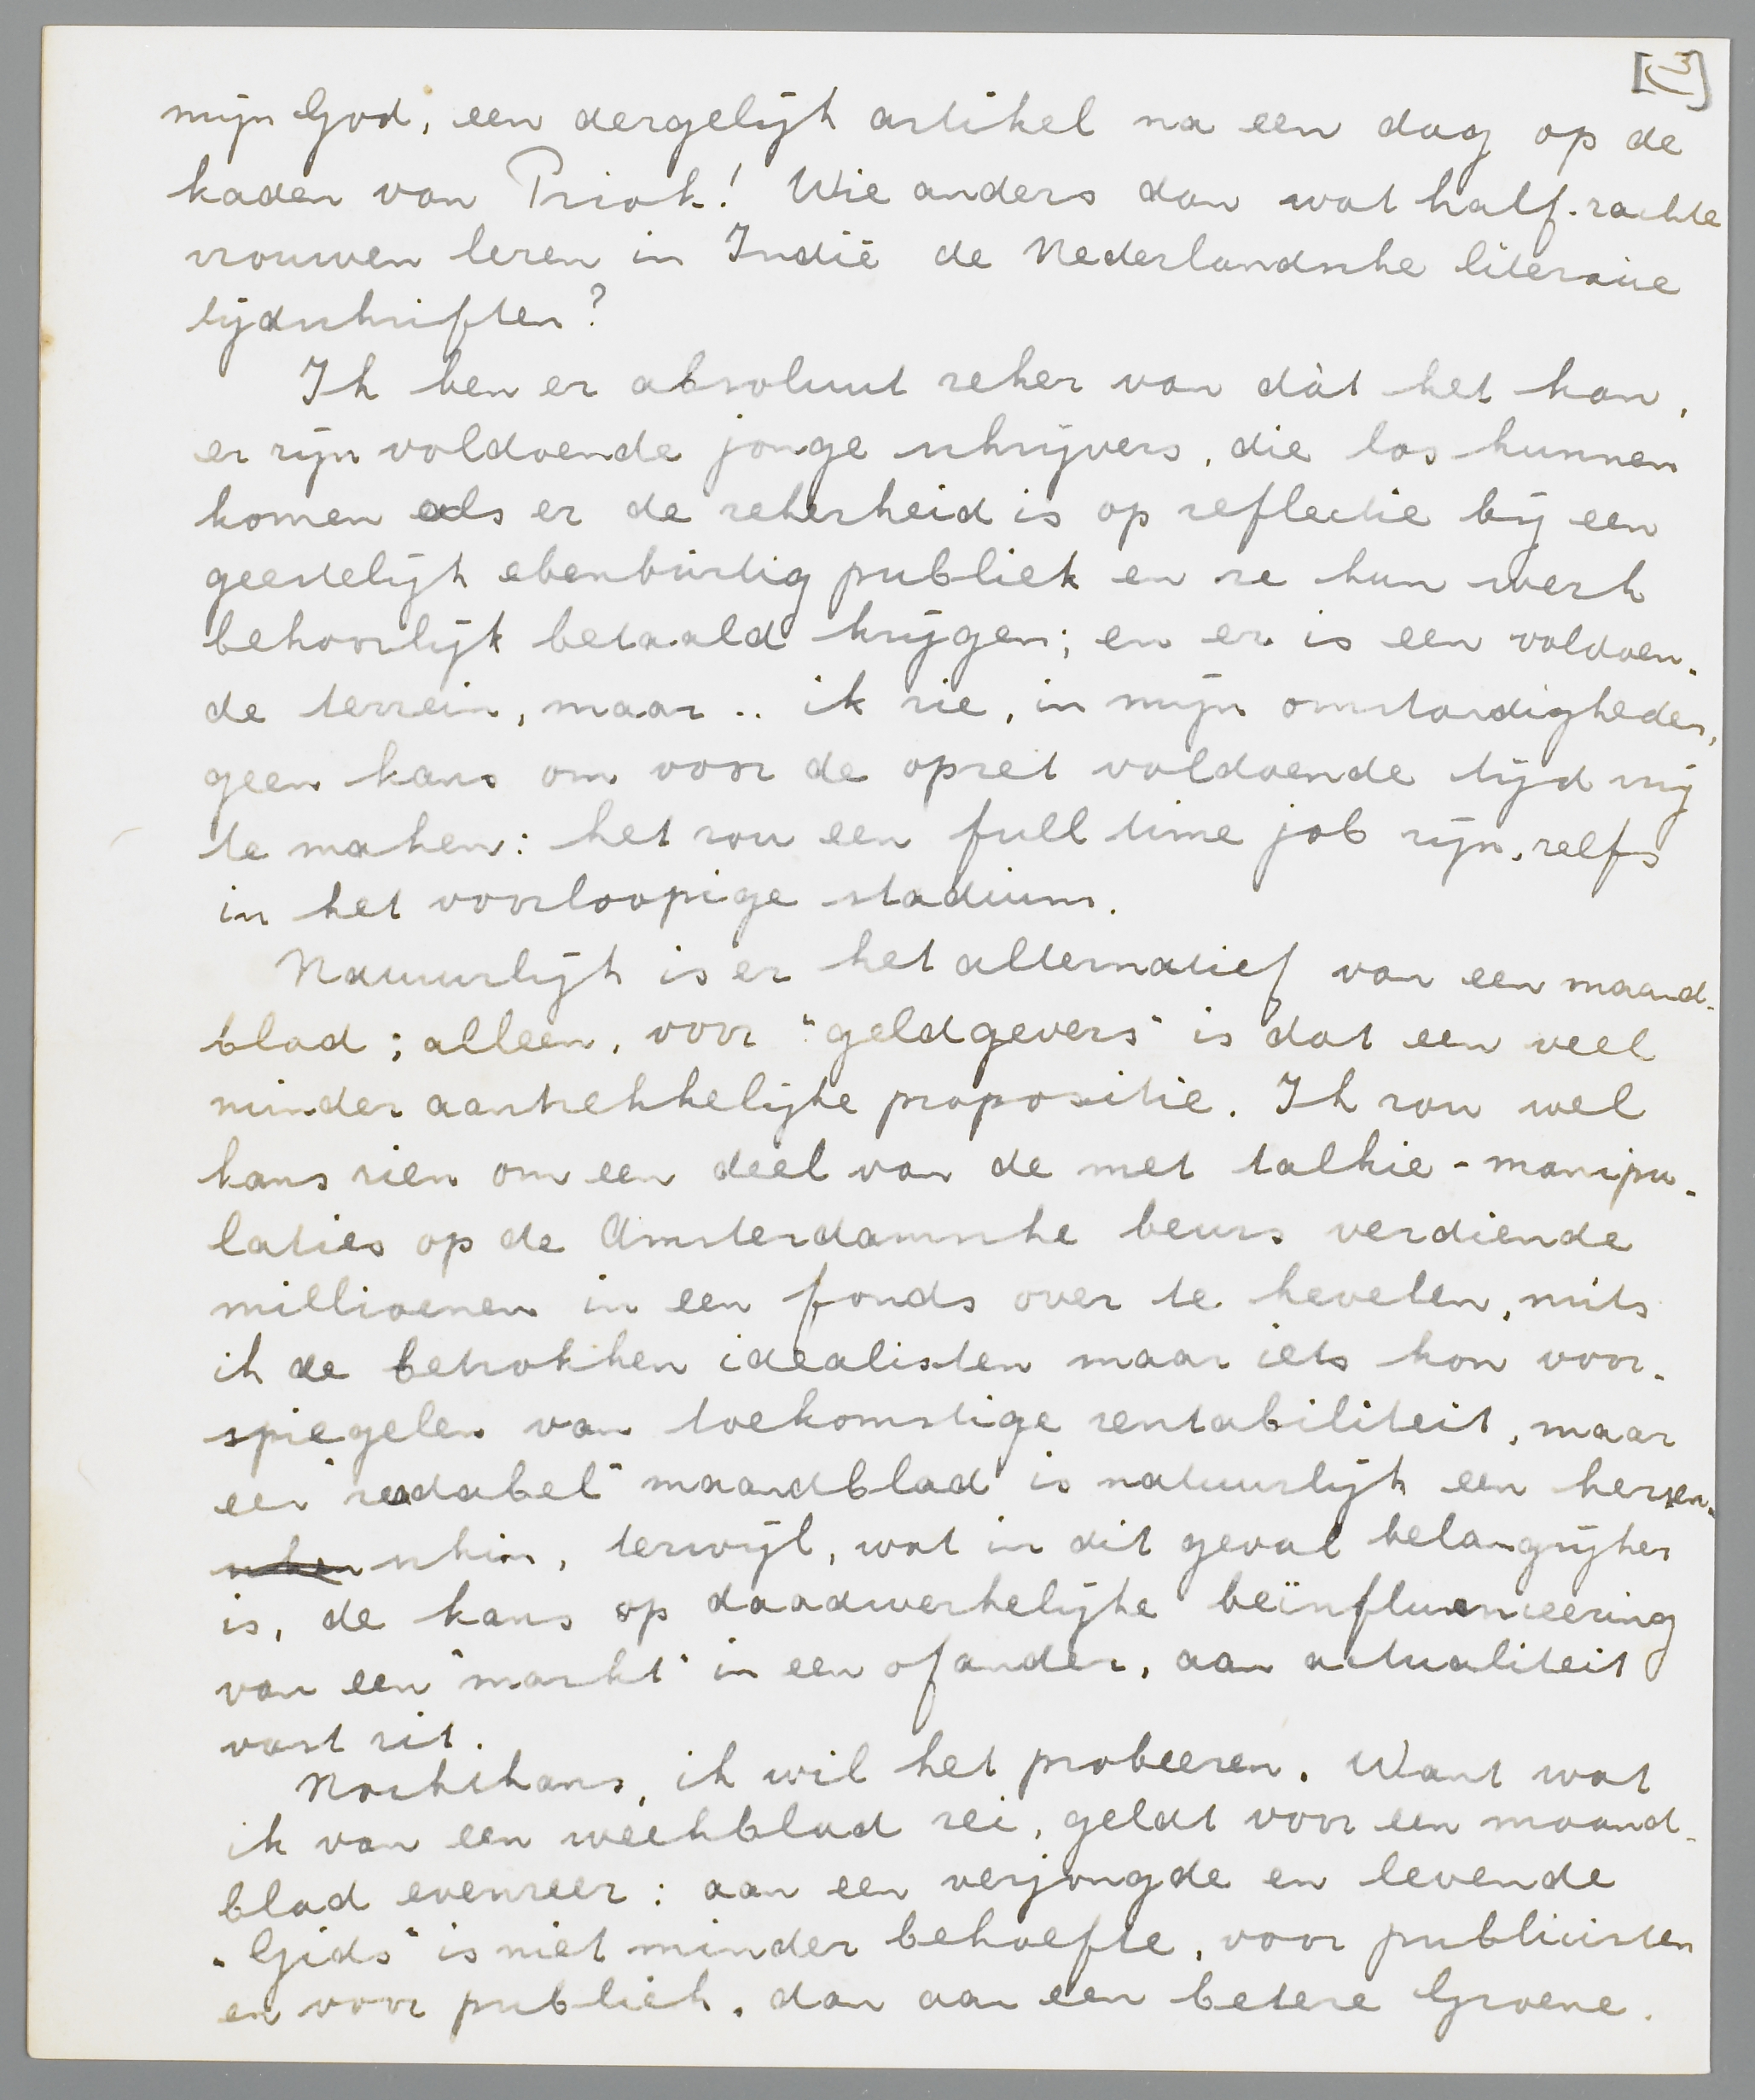 [(3)]
mijn God, een dergelijk artikel na een dag op de
kaden van Priok! Wie anders dan wat half-zachte
vrouwen lezen in Indië de Nederlandsche literaire
tijdschriften?
Ik ben er absoluut zeker van dàt het kan,
er zijn voldoende jonge schrijvers, die los kunnen
komen als er de zekerheid is op reflectie bij een
geestelijk ebenbürtig publiek en ze hun werk
behoorlijk betaald krijgen; en er is een voldoen-
de terrein, maar .. ik zie, in mijn omstandigheden,
geen kans om voor de opzet voldoende tijd vrij
te maken: het zou een full time job zijn, zelfs
in het voorloopige stadium.
Natuurlijk is er het alternatief van een maand-
blad; alleen, voor "geldgevers" is dat een veel
minder aantrekkelijke propositie. Ik zou wel
kans zien om een deel van de met talkie-manipu-
laties op de Amsterdamsche beurs verdiende
millioenen in een fonds over te hevelen, mits
ik de betrokken idealisten maar iets kon voor-
spiegelen van toekomstige rentabiliteit, maar
een "rendabel" maandblad is natuurlijk een hersen-
schen schim, terwijl, wat in dit geval belangrijker
is, de kans op daadwerkelijke beïnfluenceering
van een "markt" in een of ander, aan actualiteit
vast zit.
Nochthans, ik wil het probeeren. Want wat
ik van een weekblad zei, geldt voor een maand-
blad evenzeer: aan een verjongde en levende
"Gids" is niet minder behoefte, voor publicisten
en voor publiek, dan aan een betere Groene.